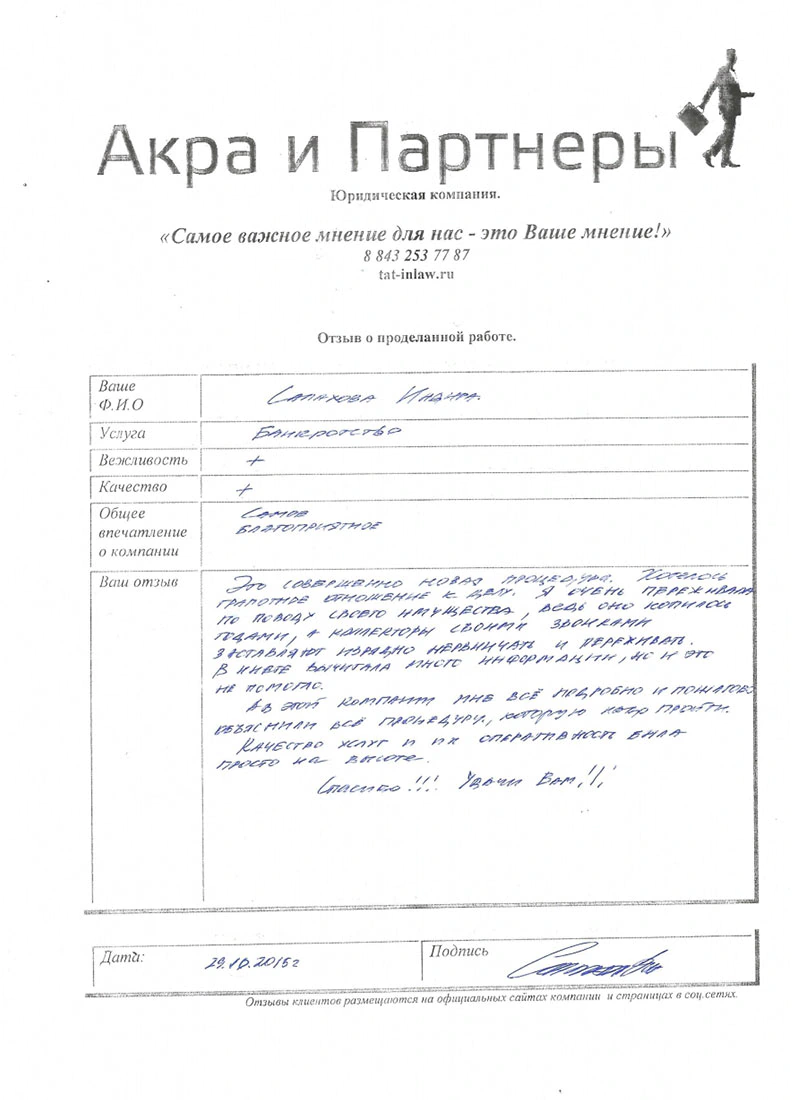 Акра и Партнеры
Юридическая компания.
«Самое важное мнение для нас - это Ваше мнение!»
8 843 253 77 87
tat-inlaw.ru
Отзыв о проделанной работе.
Ваше
Ф.И.О
Салахова Индира.
Услуга
Банкротство
Вежливость
+
Качество
+
Общее
впечатление
о компании
Самое
благоприятное
Ваш отзыв
Это совершенно новая процедура. Хотелось
грамотное отношение к делу. Я очень переживала
по поводу своего имущества, ведь оно копилось
годами, а коллекторы своими звонками
заставляют изрядно нервничать и переживать.
В инете вычитала много информации, но и это
не помогло.
А в этой компании мне всё подробно и пошагово
объяснили всю процедуру, которую надо пройти.
Качество услуг и их оперативность была
просто на высоте.
Спасибо!!! Удачи Вам!!!
Дата:
29.10.2015г
Подпись
Отзывы клиентов размещаются на официальных сайтах компании и страницах в соц.сетях.